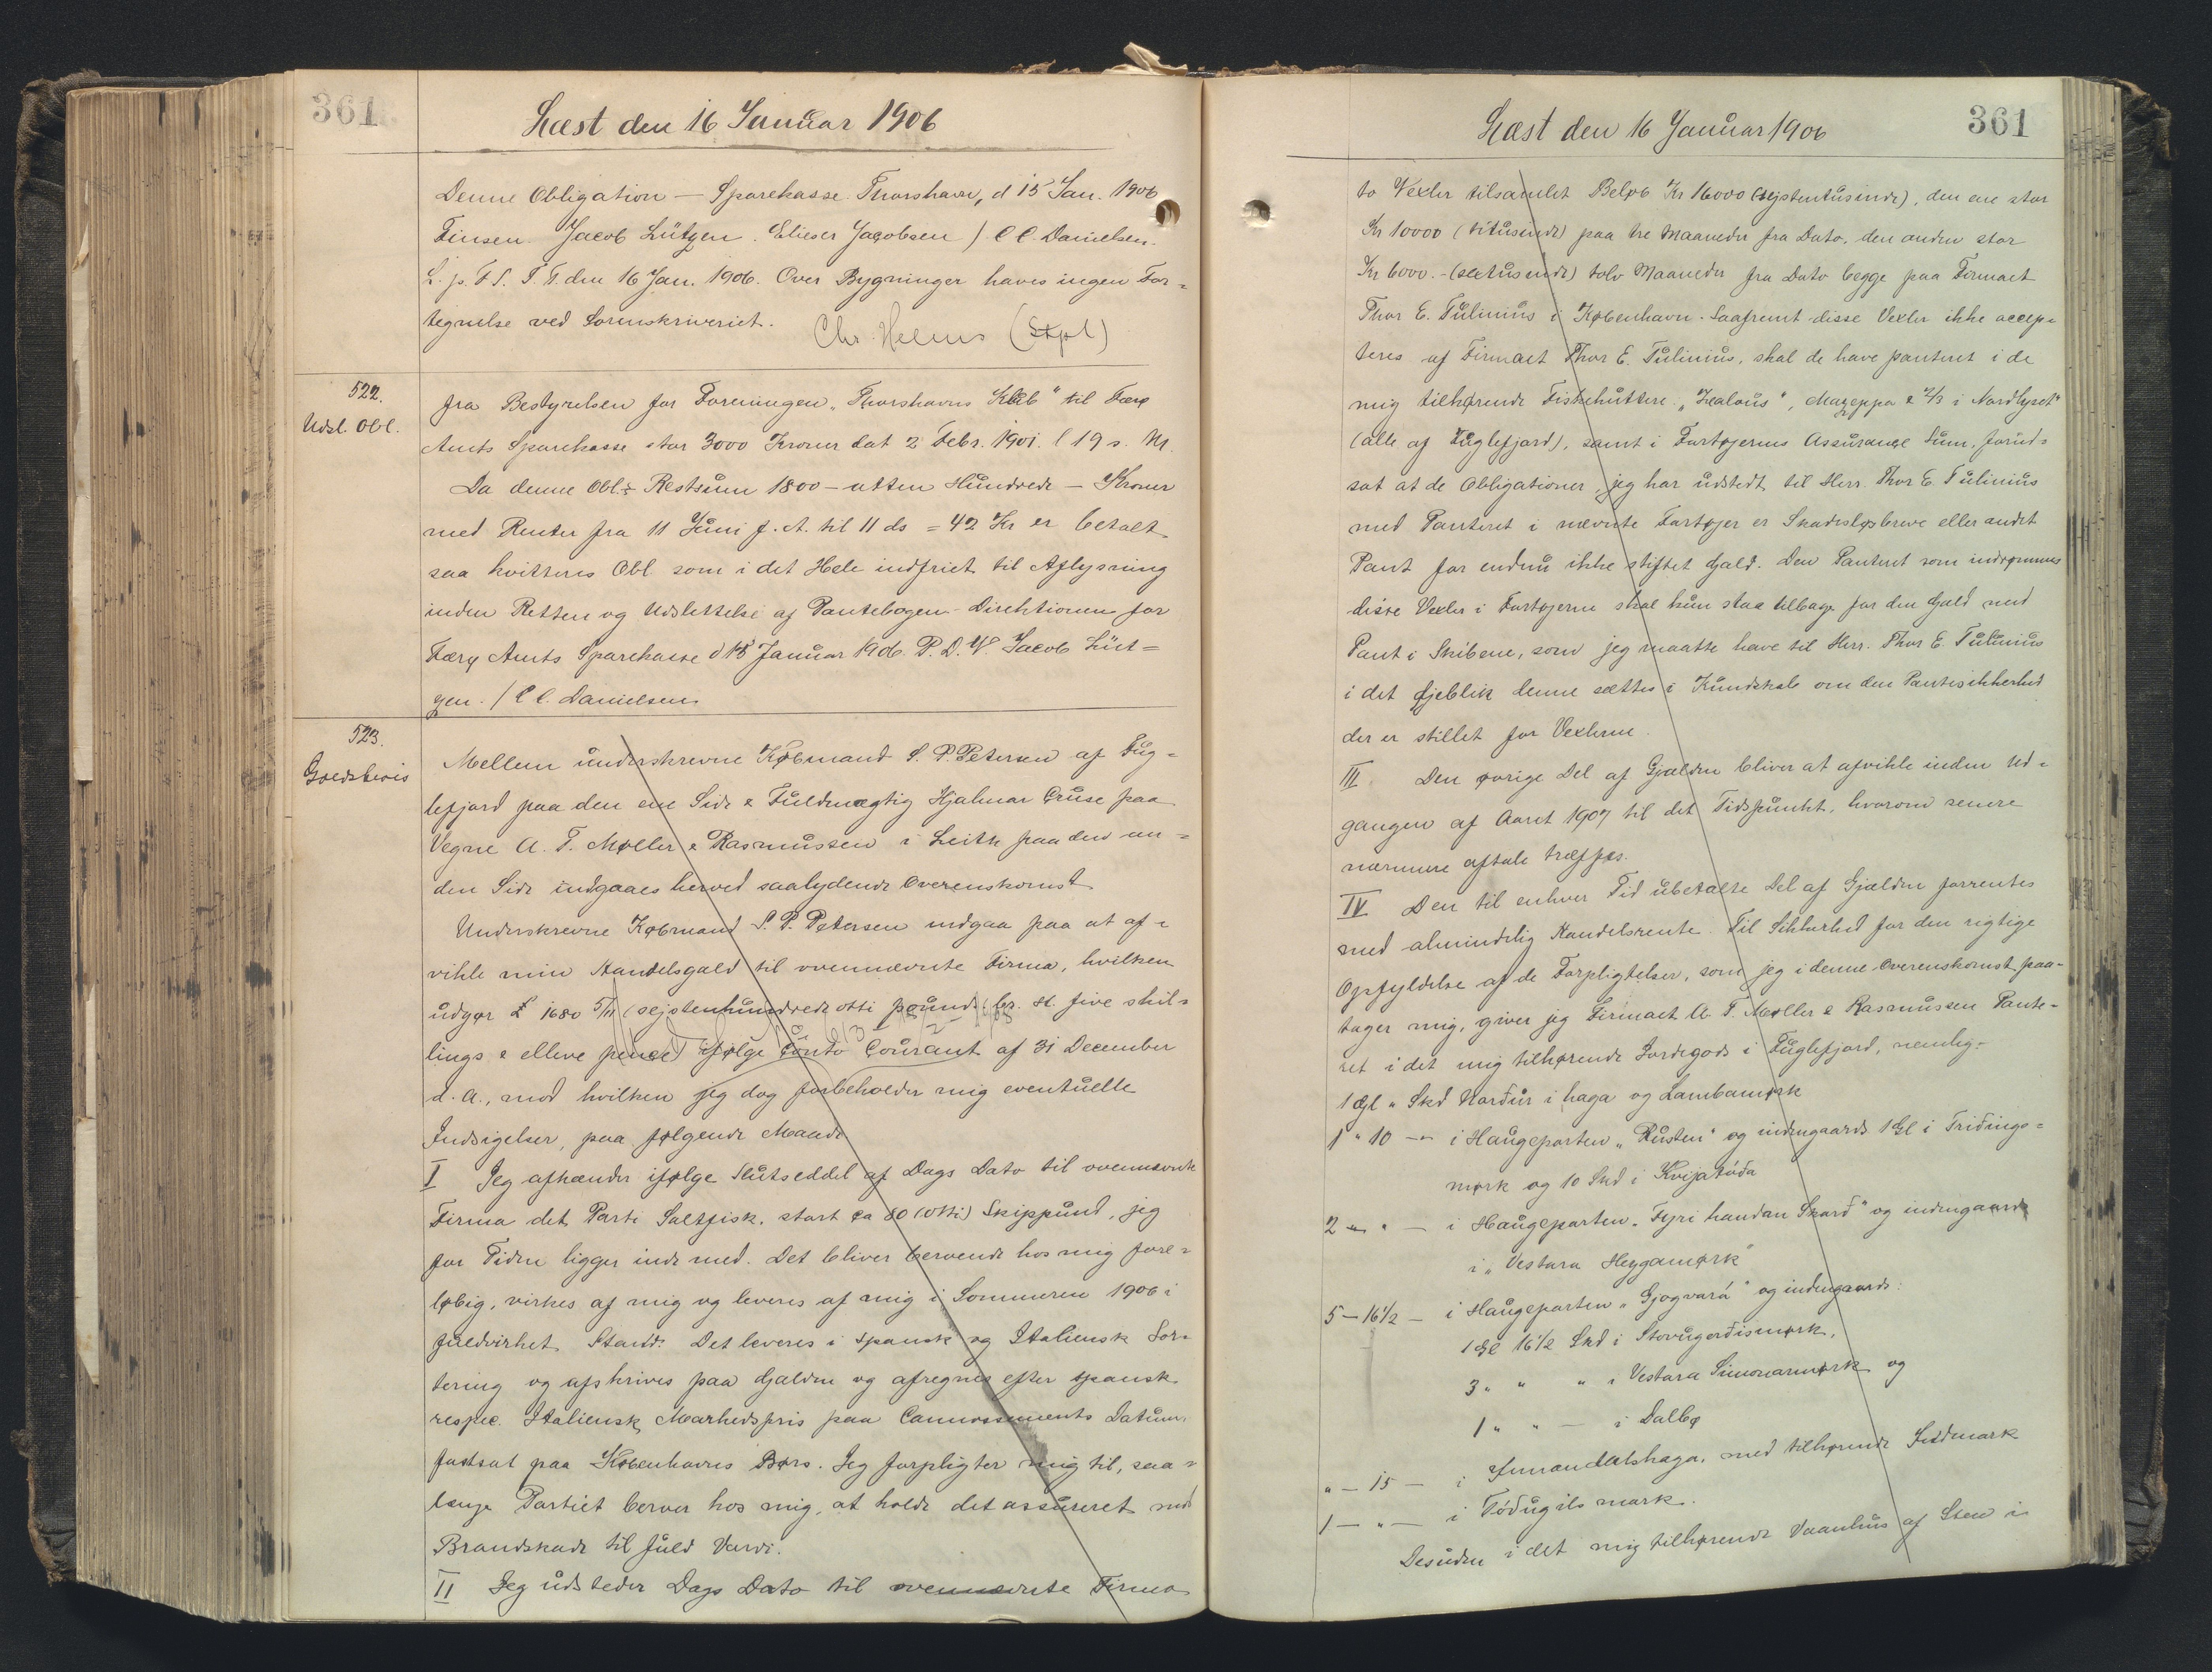 361
Læst den 16 Januar 1906
Denne Obligation — Sparekasse. Thorshavn, d 15 Jan. 1906
Finsen. Jacob Lützen. Elieser Jacobsen / C C. Danielsen.
L. p. F S. T. T. den 16 Jan. 1906. Over Bygninger haves ingen For=
tegnelse ved Sorenskriveriet.
Chr. Helms (Stpl)
522.
Udsl. Obl.
fra Bestyrelsen for Foreningen "Thorshavns Klub" til Færø
Amts Sparekasse stor 3000 Kroner dat 2 Febr. 1901. l 19 s. M.
Da denne Obl.s Restsum 1800 — atten Hundrede — Kroner
med Renter fra 11 Juni f. A. til 11 ds = 42 Kr er betalt
saa kvitteres Obl som i det Hele indfriet til Aflysning
inden Retten og Udslettelse af Pantebogen. Direktionen for
Færø Amts Sparekasse d 15 Januar 1906. P. D. V. Jacob Lüt=
zen. / C C. Danielsen
523.
Gjeldsbevis
Mellem underskrevne Købmand S. P. Petersen af Fug=
lefjord paa den ene Side & Fuldmægtig Hjalmar Cruse paa
Vegne A. T. Møller & Rasmussen i Leith paa den an=
den Side indgaaes herved saalydende Overenskomst
Underskrevne Købmand S. P. Petersen indgaa paa at af=
vikle min Handelsgæld til ovennævnte Firma, hvilken
udgør £ 1680 5/11 (sejstenhundrede otti pounds br. st. five shil=
lings & elleve pence) ifølge Conto Courant af 31 December
d. A., mod hvilken jeg dog forbeholder mig eventuelle
Indsigelser, paa følgende Maade
I Jeg afhænder ifølge Slutseddel af Dags Dato til ovennævnte
Firma det Parti Saltfisk, stort ca 80 (otti) Skippund, jeg
for Tiden ligger inde med. Det bliver beroende hos mig fore=
løbig, virkes af mig og leveres af mig i Sommeren 1906 i
fuldvirket Stand. Det leveres i spansk og Italiensk Sor=
tering og afskrives paa Gjælden og afregnes efter spansk
respec. Italiensk Markedspris paa Connossements Datum,
fastsat paa Københavns Børs. Jeg forpligter mig til, saa=
længe Partiet beror hos mig, at holde det assureret mod
Brandskade til fuld Værdi.
II Jeg udsteder Dags Dato til ovennævnte Firma
Læst den 16 Januar 1906
361
to Vexler tilsamlet Beløb Kr 16000 (sejstentusinde), den ene stor
Kr 10000 (titusinde) paa tre Maaneder fra Dato, den anden stor
Kr 6000.- (sextusinde) tolv Maaneder fra Dato begge paa Firmaet
Thor E. Tulinius i København. Saafremt disse Vexler ikke accep=
teres af Firmaet Thor E. Tulinius, skal de have panteret i de
mig tilhørende Fiskekuttere "Zealous", Mazeppa & 2/3 i Nordlyset"
(alle af Fuglefjord), samt i Fartøjernes Assurance Sum, forud=
sat at de Obligationer, jeg har udstedt til Herr. Thor E. Tulinius
med Panteret i nævnte Fartøjer er Skadesløsbreve eller andet
Pant for endnu ikke stiftet Gjæld. Den Panteret som indrømmes
disse Vexler i Fartøjerne skal kun staa tilbage for den Gjæld med
Pant i Skibene, som jeg maatte have til Herr. Thor E. Tulinius
i det Øjeblik denne sættes i Kundskab om den Pantesikkerhed
der er stillet for Vexlerne.
III. Den øvrige Del af Gjælden bliver at afvikle inden Ud=
gangen af Aaret 1907 til det Tidspunkt, hvorom senere
nærmere aftale træffes.
IV Den til enhver Tid ubetalte Del af Gjælden forrentes
med almindelig Handelsrente. Til Sikkerhed for den rigtige
Opfyldelse af de Forpligtelser, som jeg i denne Overenskomst paa-
tager mig, giver jeg Firmaet A. T. Møller & Rasmussen Pante-
ret i det mig tilhørende Jordegods i Fuglefjord, nemlig-
1 Gl " Skd Nordur i haga og Lambamørk
1 " 10 — i Haugeparten "Rusten" og indengaards 1 Gl i Tridings=
mørk og 10 Skd i Kvijatóda
2 — " — i Haugeparten "Fyri handan Skard" og indengaards
i "Vestara Heygamørk"
5 — 16 1/2 — i Haugeparten "Gjogvará" og indengaards:
1 Gl 16 1/2 Skd i Stovugerdismørk,
3 " " " i Vestara Simonarmørk og
1 " " — i Dalbø
" — 15 — i Innandalshaga, med tilhørende Jordmark
1 — " — i Tódugils mark.
Desuden i det mig tilhørende Vaanhus af Sten i